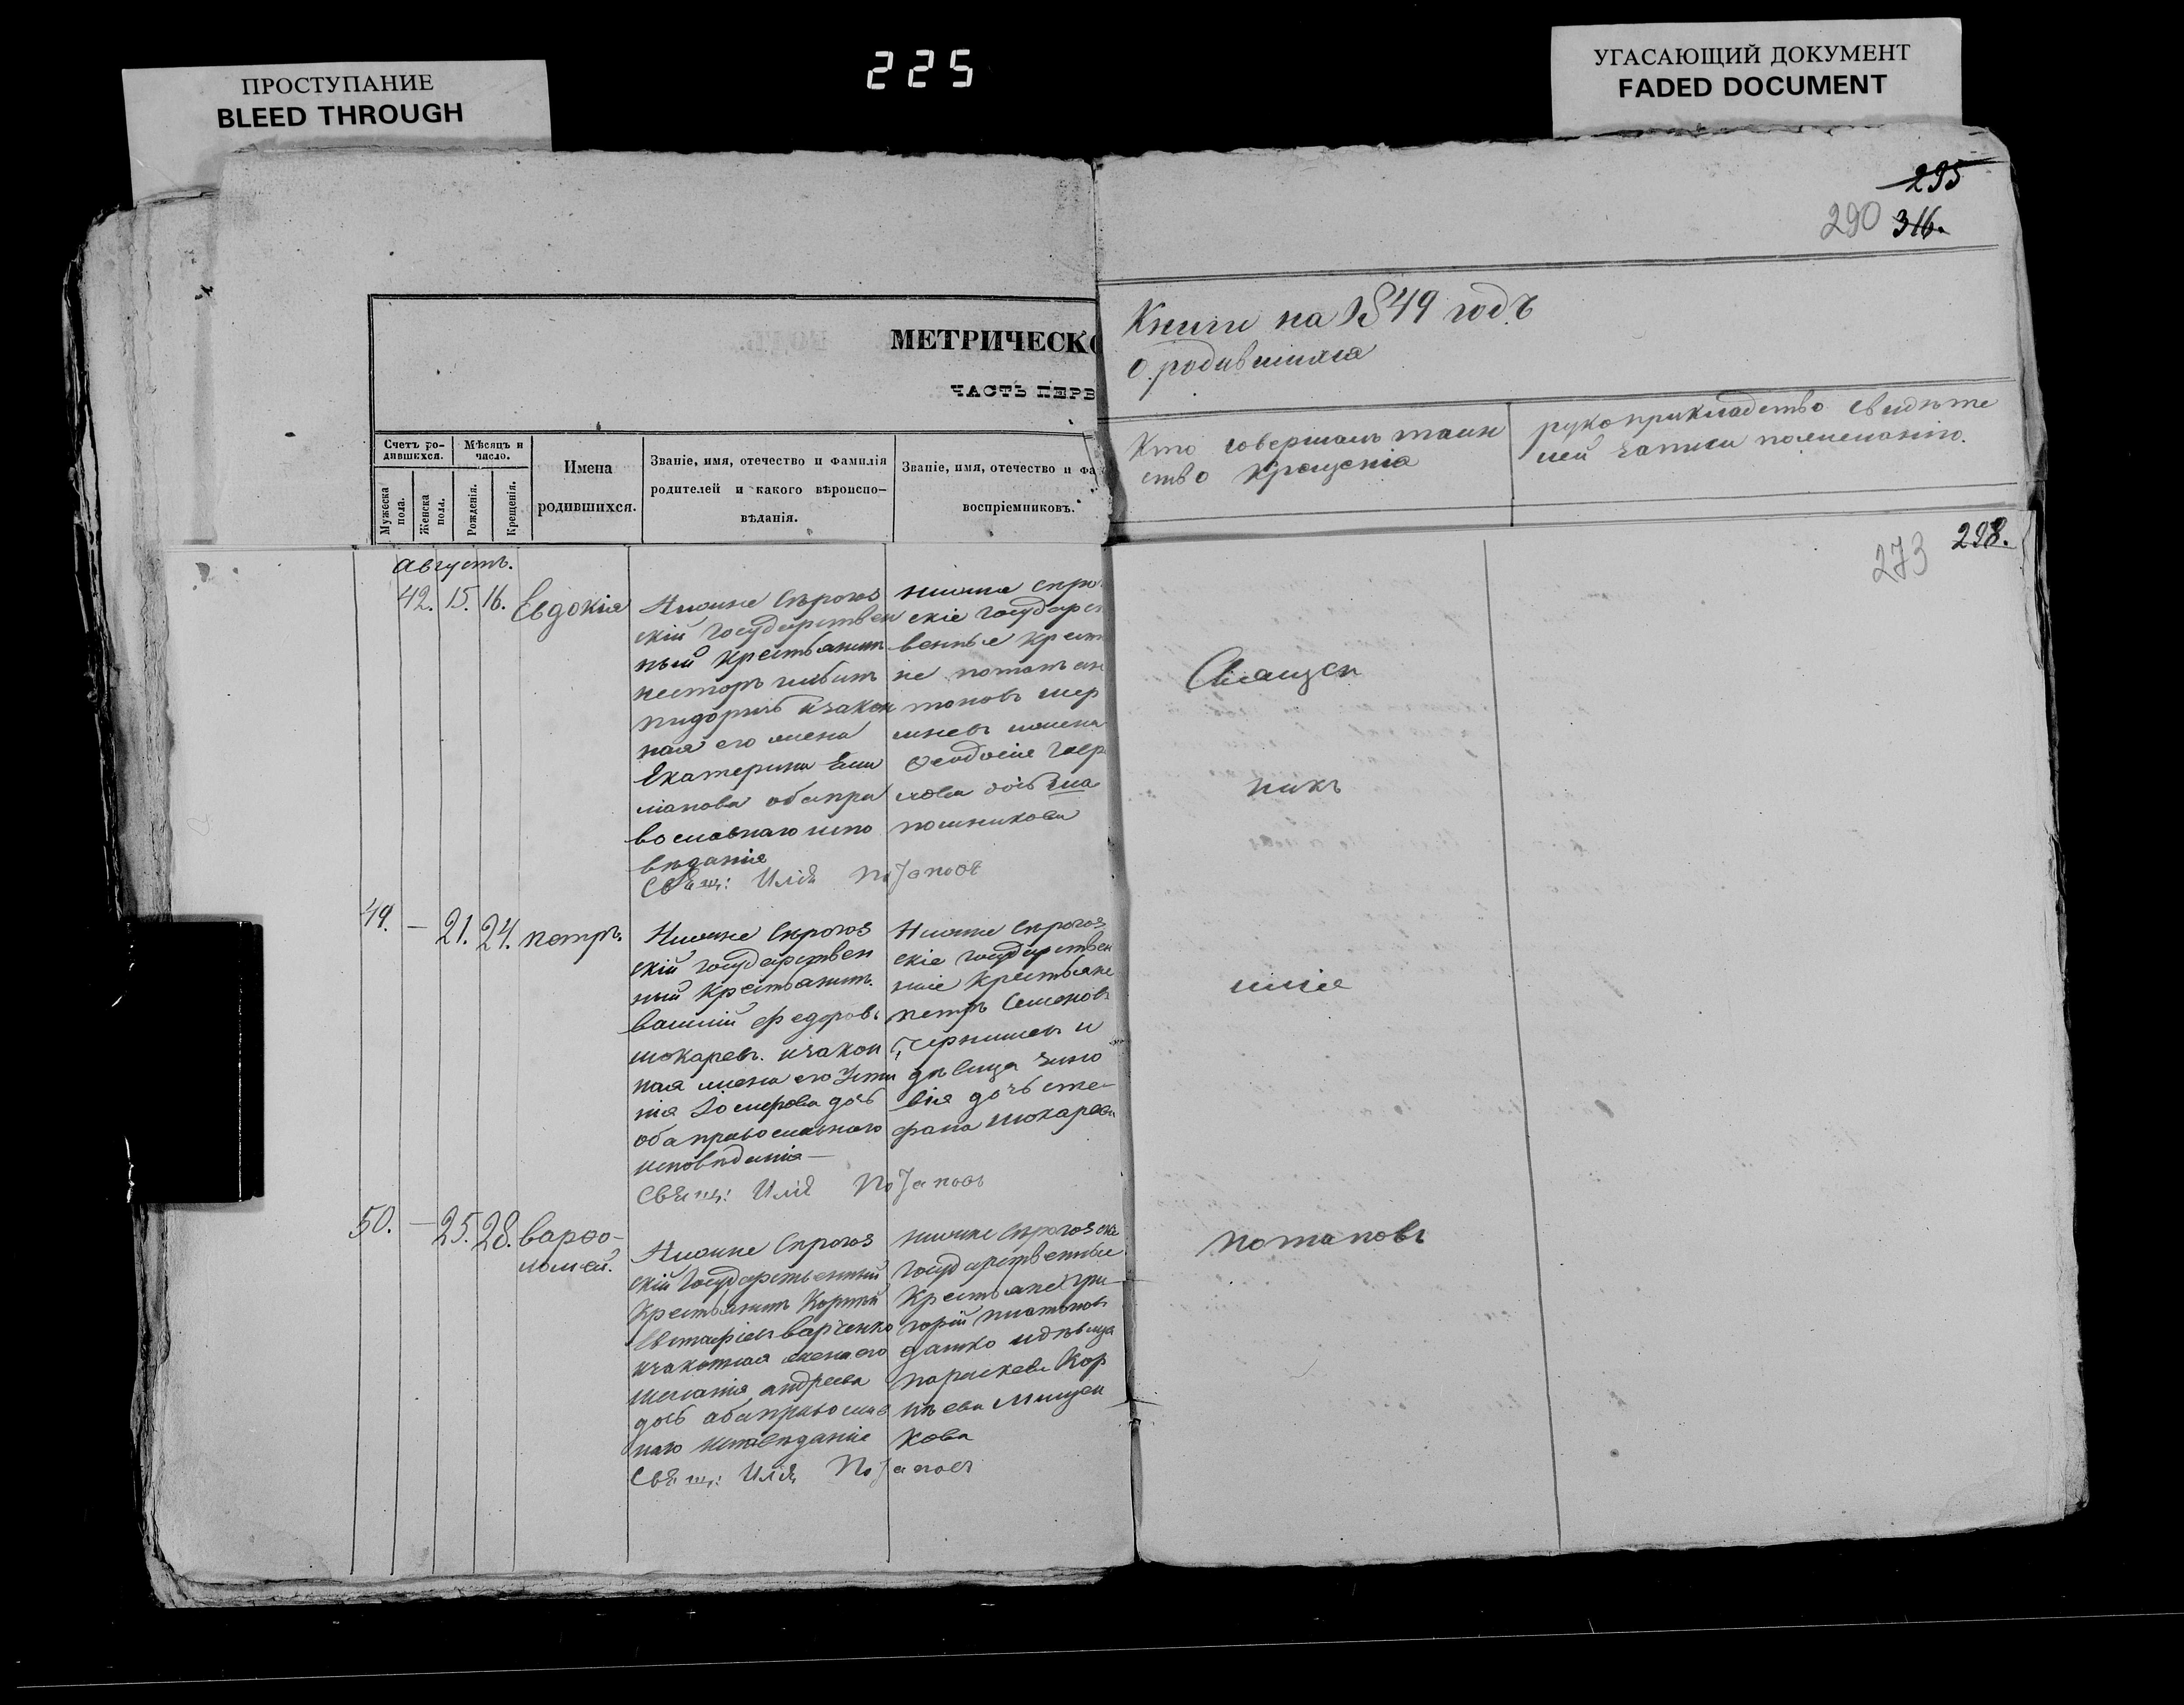 ПРОСТУПАНИЕ
BLEED THROUGH
225
УГАСАЮЩИЙ ДОКУМЕНТ
FADED DOCUMENT
295
290 316.
МЕТРИЧЕСКО
ЧАСТЬ ПЕРВ
Книги на 1849 годъ
о родившихся
Счетъ ро-
дившихся.
Мужеска
пола.
Женска
пола.
Мѣсяцъ и
число.
Рожденія.
Крещенія.
Имена
родившихся.
Званіе, имя, отечество и фамилія
родителей и какого вѣроиспо-
вѣданія.
Званіе, имя, отечество и фа
воспріемниковъ.
Кто совершалъ таин
ство крещенія
рукоприкладство свидѣте
лей записи по желанію.
273 298.
Августъ.
42. 15. 16. Евдокія
Нижне Сѣрогоз
скій государствен
ный крестьянинъ
несторъ
и закон
ная его жена
Екатерина Еми
лианова оба пра
вославнаго испо
вѣданія
Свящ: Илія Потапов
нижне Сѣро
скіе государст
венные крест
не потап
Феодосія
дочь
Священ
никъ
илія
потаповъ
49. — 21. 24. петръ.
Нижне Сѣрогоз
скій государствен
ный крестьянинъ
василій федоровъ
токаревъ. и закон
ная жена его Усти
нія дочь
оба православнаго
исповѣданія —
Свящ: Илія Потаповъ
Нижне Сѣрогоз
скіе государствен
ніе крестьяне
петръ Семеновъ
и
дѣвица Зино
вія дочь сте-
фана токарева
50. — 25. 28. варфо-
ломей.
Нижне Сѣрогоз
скій Государственный
крестьянинъ Корній
Евстафіевъ варченко
и законная жена его
меланія андреева
дочь оба православ
наго исповѣданія
Свящ: Илія Потаповъ
нижне Сѣрогозскіе
государственные
крестьяне Гри-
горій
и дѣвица
параскева Кор
нѣева Мищен
кова